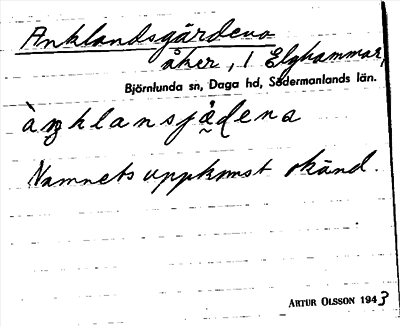 Anklandsgärdena
åker, 1 Elghammar,
Björnlunda sn, Daga hd, Södermanlands län.
àŋklansjä̰dena
Namnets uppkomst okänd.
ARTUR OLSSON 1943